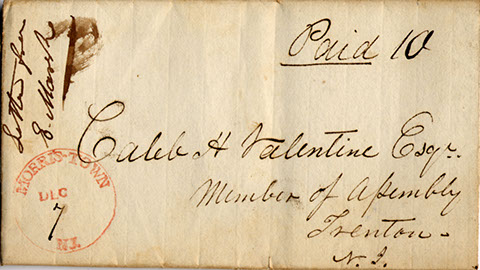 Paid 10
Letter from
E. Marsh
Caleb H Valentine Esqr.
Member of Assembly
Trenton
N.J.
MORRIS-TOWN
DEC
7
N.J.